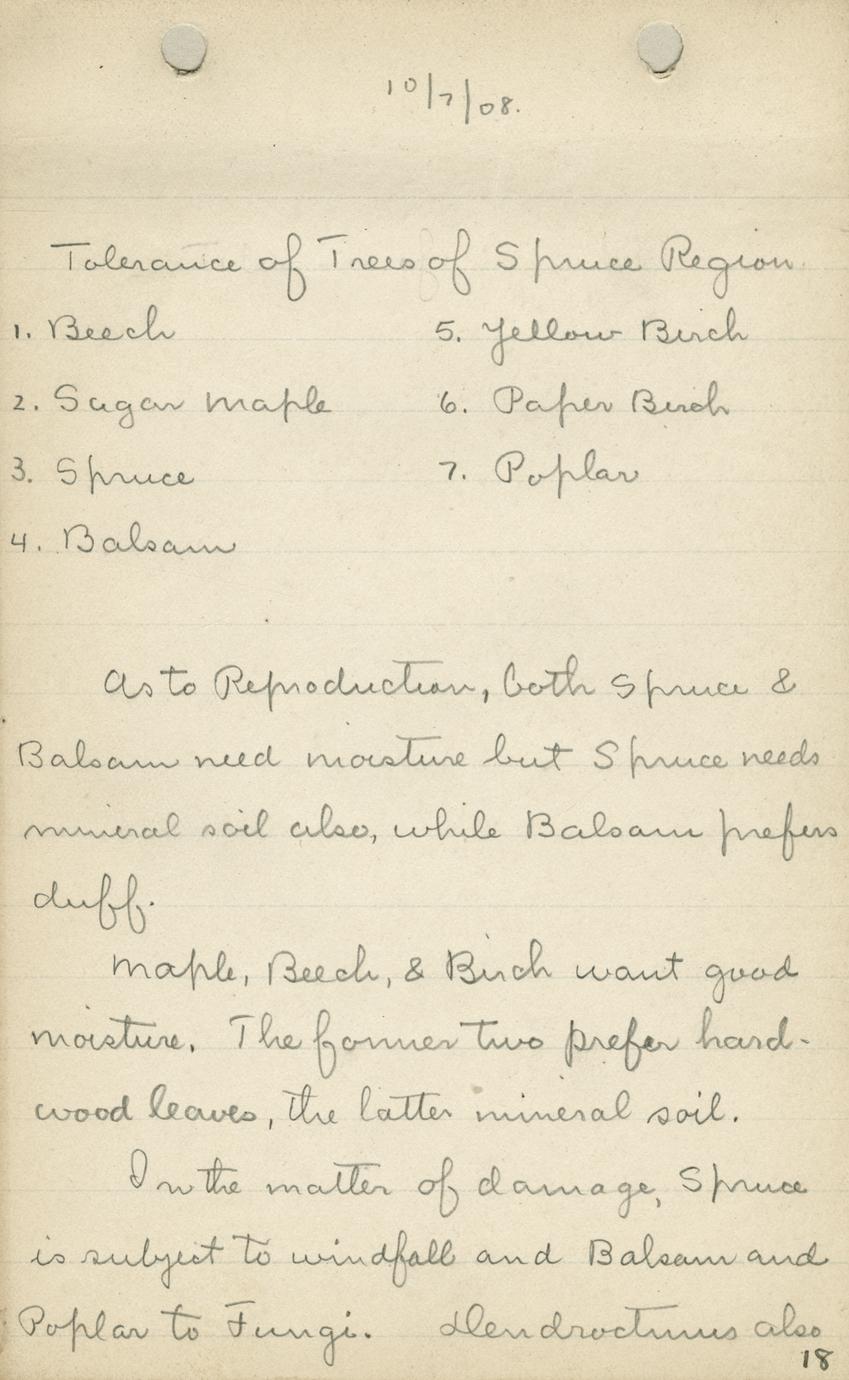 10/7/08.
Tolerance of Trees of Spruce Region
1. Beech 5. Yellow Birch
2. Sugar Maple 6. Paper Birch
3. Spruce 7. Poplar
4. Balsam
As to Reproduction, both Spruce &
Balsam need moisture but Spruce needs
mineral soil also, while Balsam prefers
duff.
Maple, Beech, & Birch want good
moisture. The former two prefer hard-
wood leaves, the latter mineral soil.
In the matter of damage, Spruce
is subject to windfall and Balsam and
Poplar to Fungi. Dendroctunus also
18